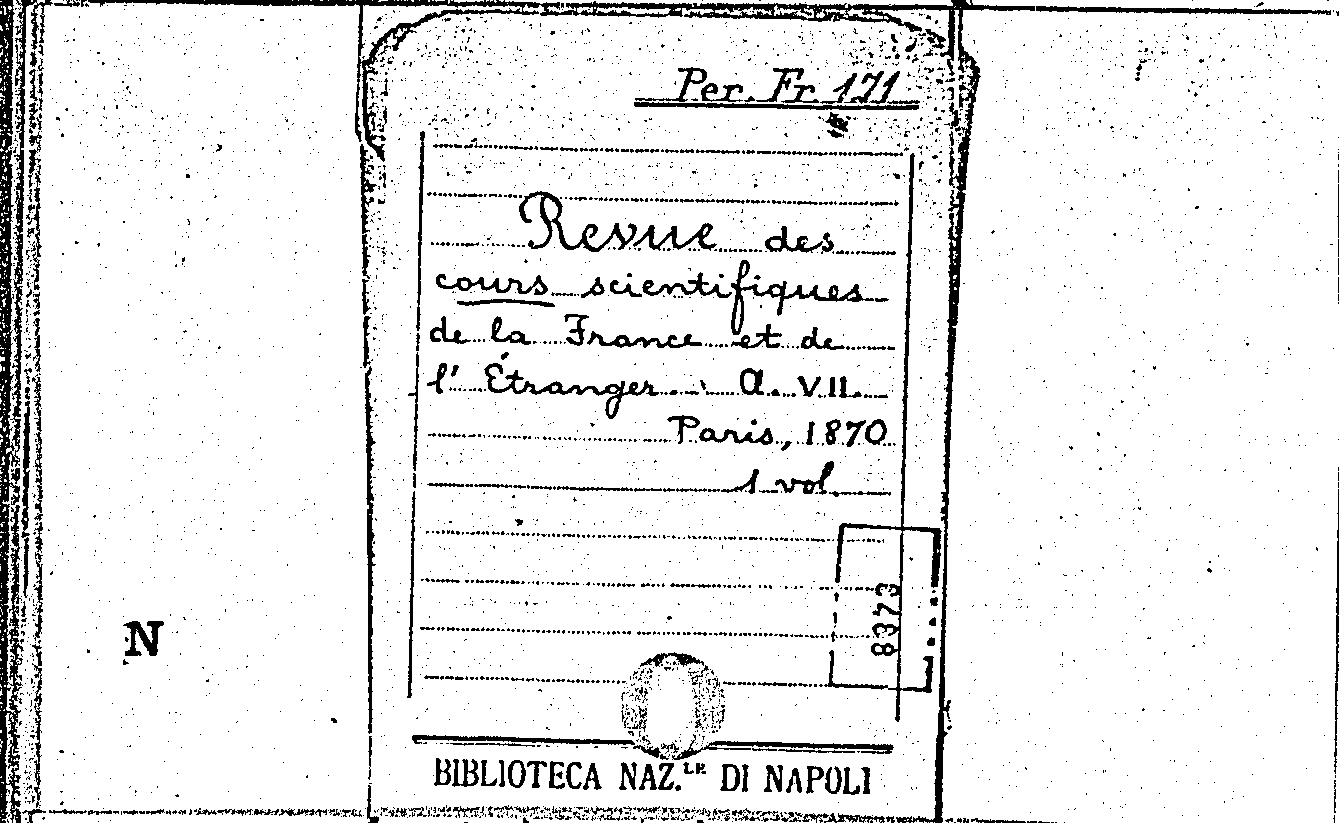 Per. Fr 171
Revue des
cours scientifiques
de la France et de
l' Étranger. A. VII.
Paris, 1870
1 vol.
8373
N
BIBLIOTECA NAZ.LE DI NAPOLI